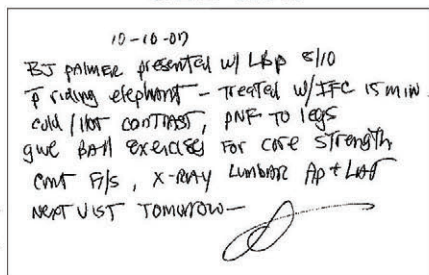 10-10-07
BJ PALMER presented w/ LBP 8/10
p̄ riding elephant - Treated w/IFC 15 min
cold/HOT CONTRAST, PNF TO legs
give BALL exercises For core strength
CMT F/S, X-RAY LUMBAR AP + LAT
NEXT VIST TOMORROW-